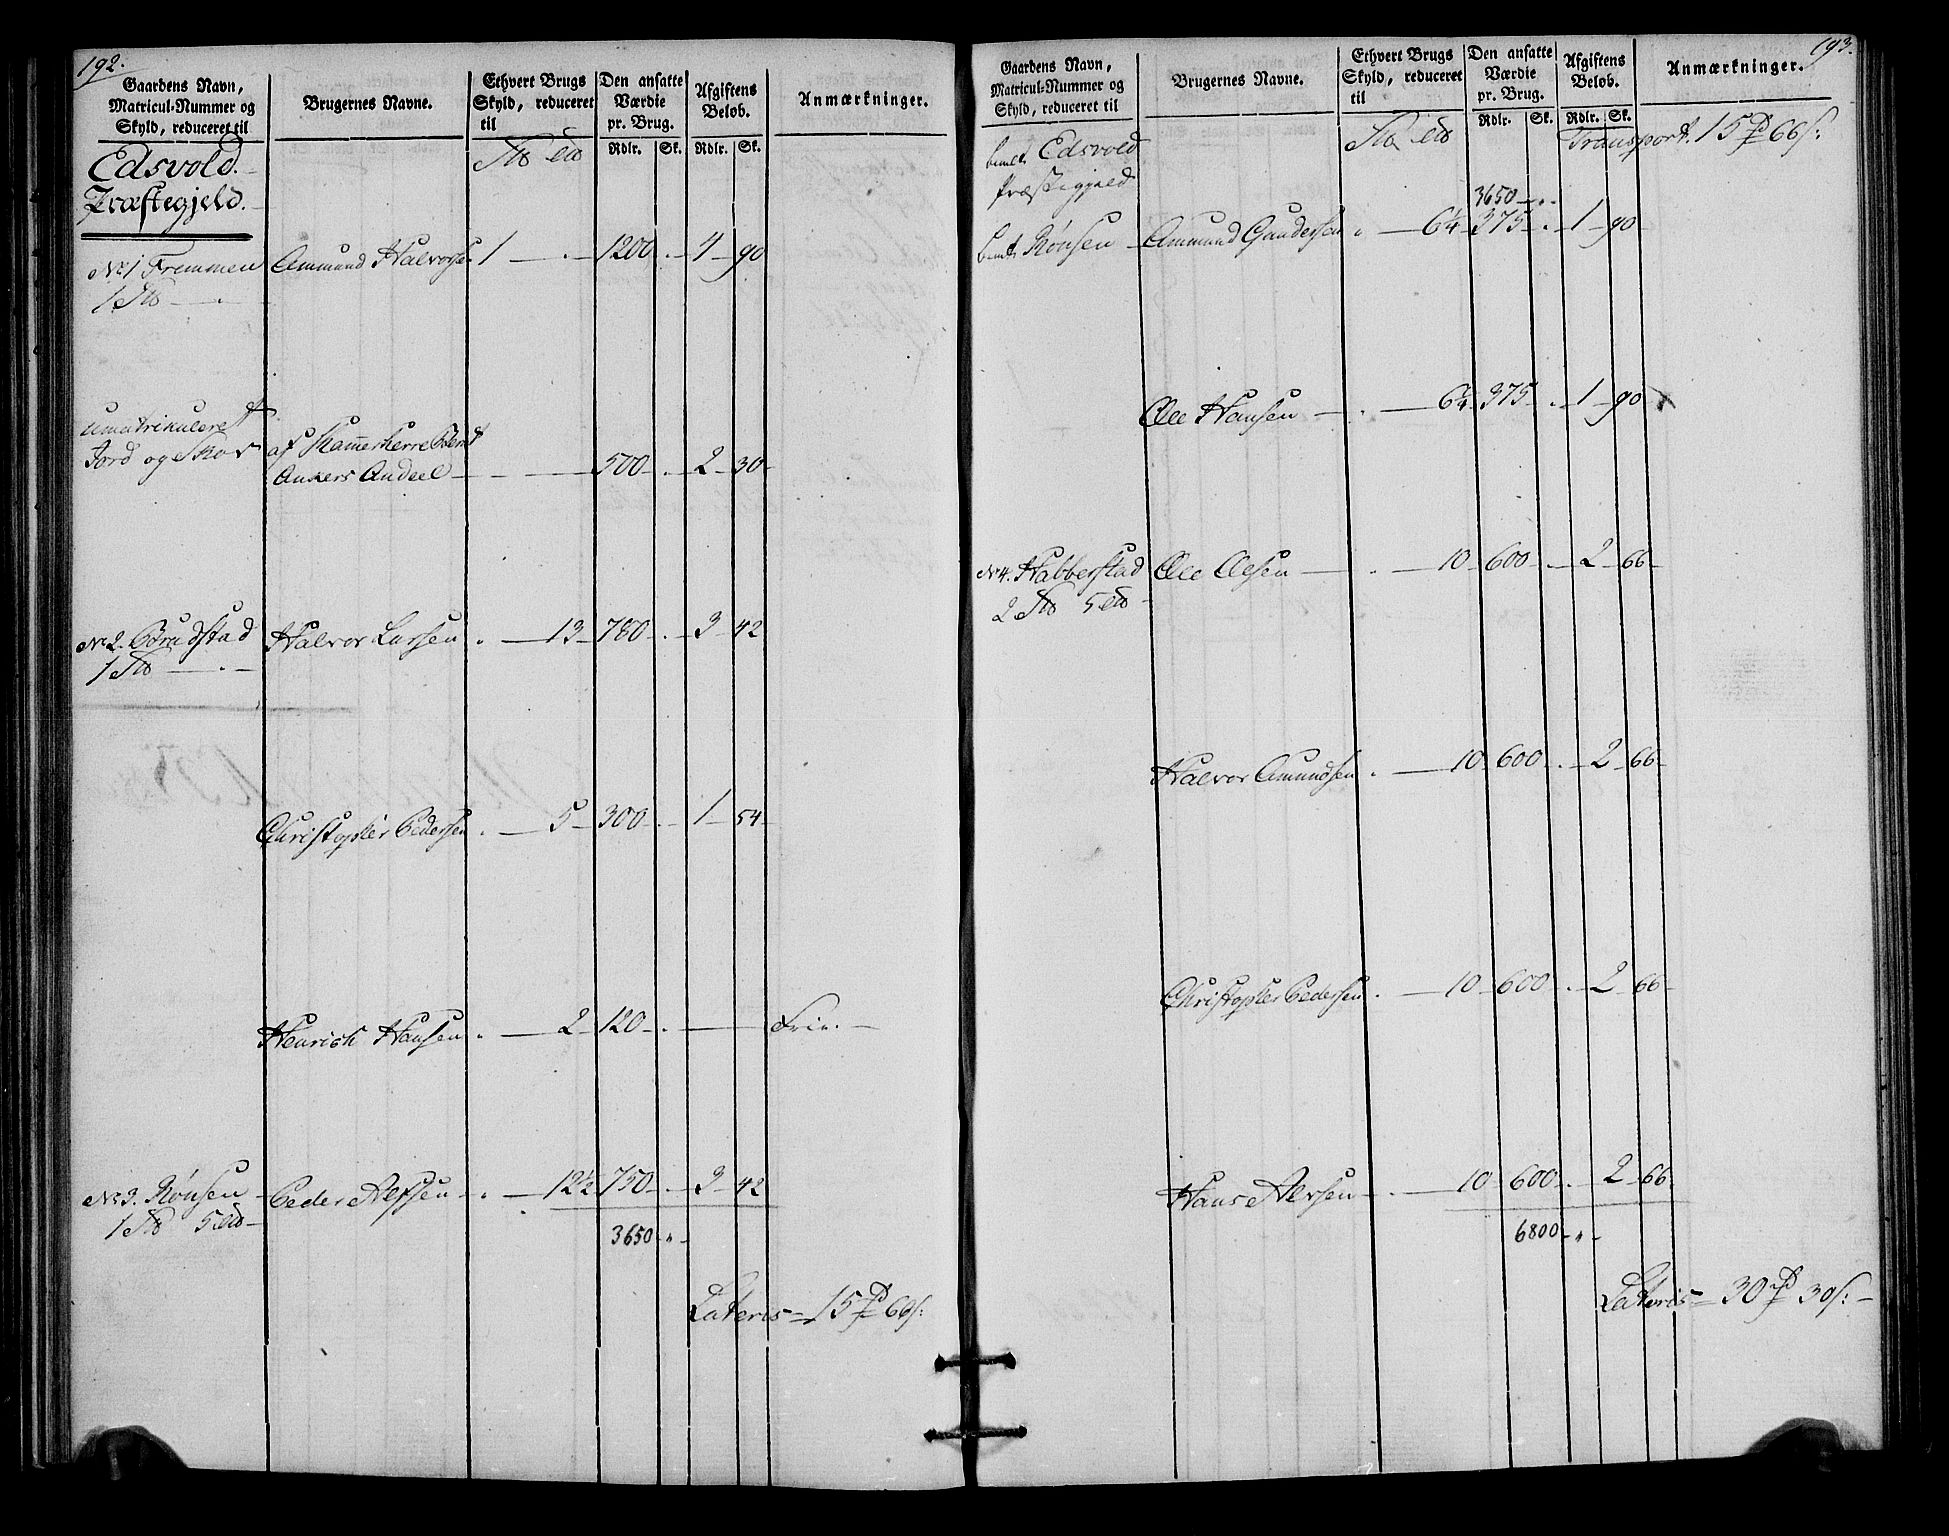 192.
Gaardens Navn, Matricul-Nummer og Skyld, reduceret til
Brugernes Navne.
Ethvert Brugs Skyld, reduceret til
Den ansatte Værdie pr. Brug.
Afgiftens Beløb.
Anmærkninger.
Rdlr. Sk. Rdlr. Sk.
Edsvold
Præstegjeld.
No 1 Fremmen Ammund Halvors. 1 — . — 1200 . — 4 — 90
1 — . —
umatrikuleret
Jord og Skov af Kammerherre Bernt
Ankers Andeel — — — 500 — . — 2 — 30 —
No 2. Brudstad Halvor Larsen . — 13 — 780 — . — 3 — 42
1 — . —
Christopher Pedersen . — 5 — 300 — . — 1 — 54 —
Henrich Hansen . — 2 — 120 — . — Frie. —
No 3. Rönsen — Peder — . — 12½ 750 — . — 3 — 42
1 5
3650 — " —
Lateris — 15 66 s:
193.
Gaardens Navn, Matricul-Nummer og Skyld, reduceret til
Brugernes Navne.
Ethvert Brugs Skyld, reduceret til
Den ansatte Værdie pr. Brug.
Afgiftens Beløb.
Anmærkninger.
Rdlr. Sk. Rdlr. Sk.
Transport. 15 66 s:
bemt. Edsvold
Præstegjæld
3650 — " —
bemt Rönsen — Ammund Gundersen " — 6¼ 375 — . — 1 — 90 —
Ole Hansen — . — 6¼ 375 — . — 1 — 90
No 4. Habberstad Ole Olesen — . — 10 — 600 — . — 2 — 66 —
2 5
Halvor Amundsen . — 10 — 600 — . — 2 — 66 —
Christopher Pedersen . — 10 — 600 — . — 2 — 66 —
Hans — . — 10 — 600 — . — 2 — 66
6800 — " —
Lateris — 30 30 s: —